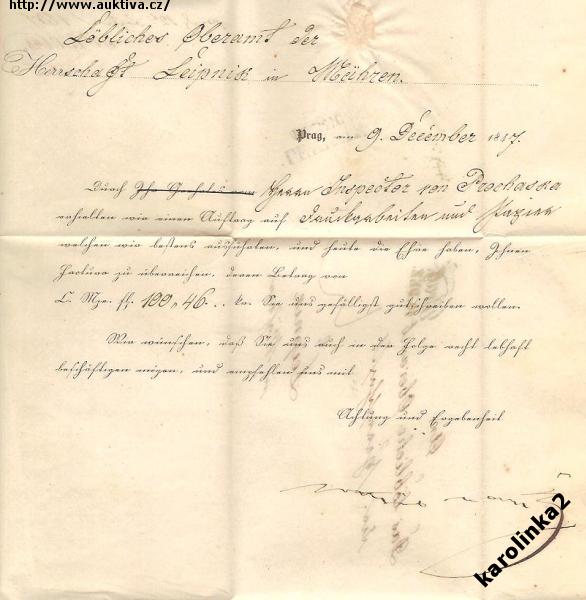 http://www.auktiva.cz/
Löbliches Oberamt der
Herrschaft Leipnik in Mähren.
Prag, am 9. December 1847.
Durch Ihr Geehrtes vom Herrn Inspector von Prochaska
erhielten wir einen Auftrag auf Druckarbeiten und Papier
welchen wir bestens ausführten, und heute die Ehre haben, Ihnen
Factura zu überreichen, deren Betrag von
C. Mze. fl. 100 „ 46 .. kr. Sie uns gefälligst gutschreiben wollen.
Wir wünschen, daß Sie uns auch in der Folge recht lebhaft
beschäftigen mögen, und empfehlen uns mit
Achtung und Ergebenheit
karolinka2